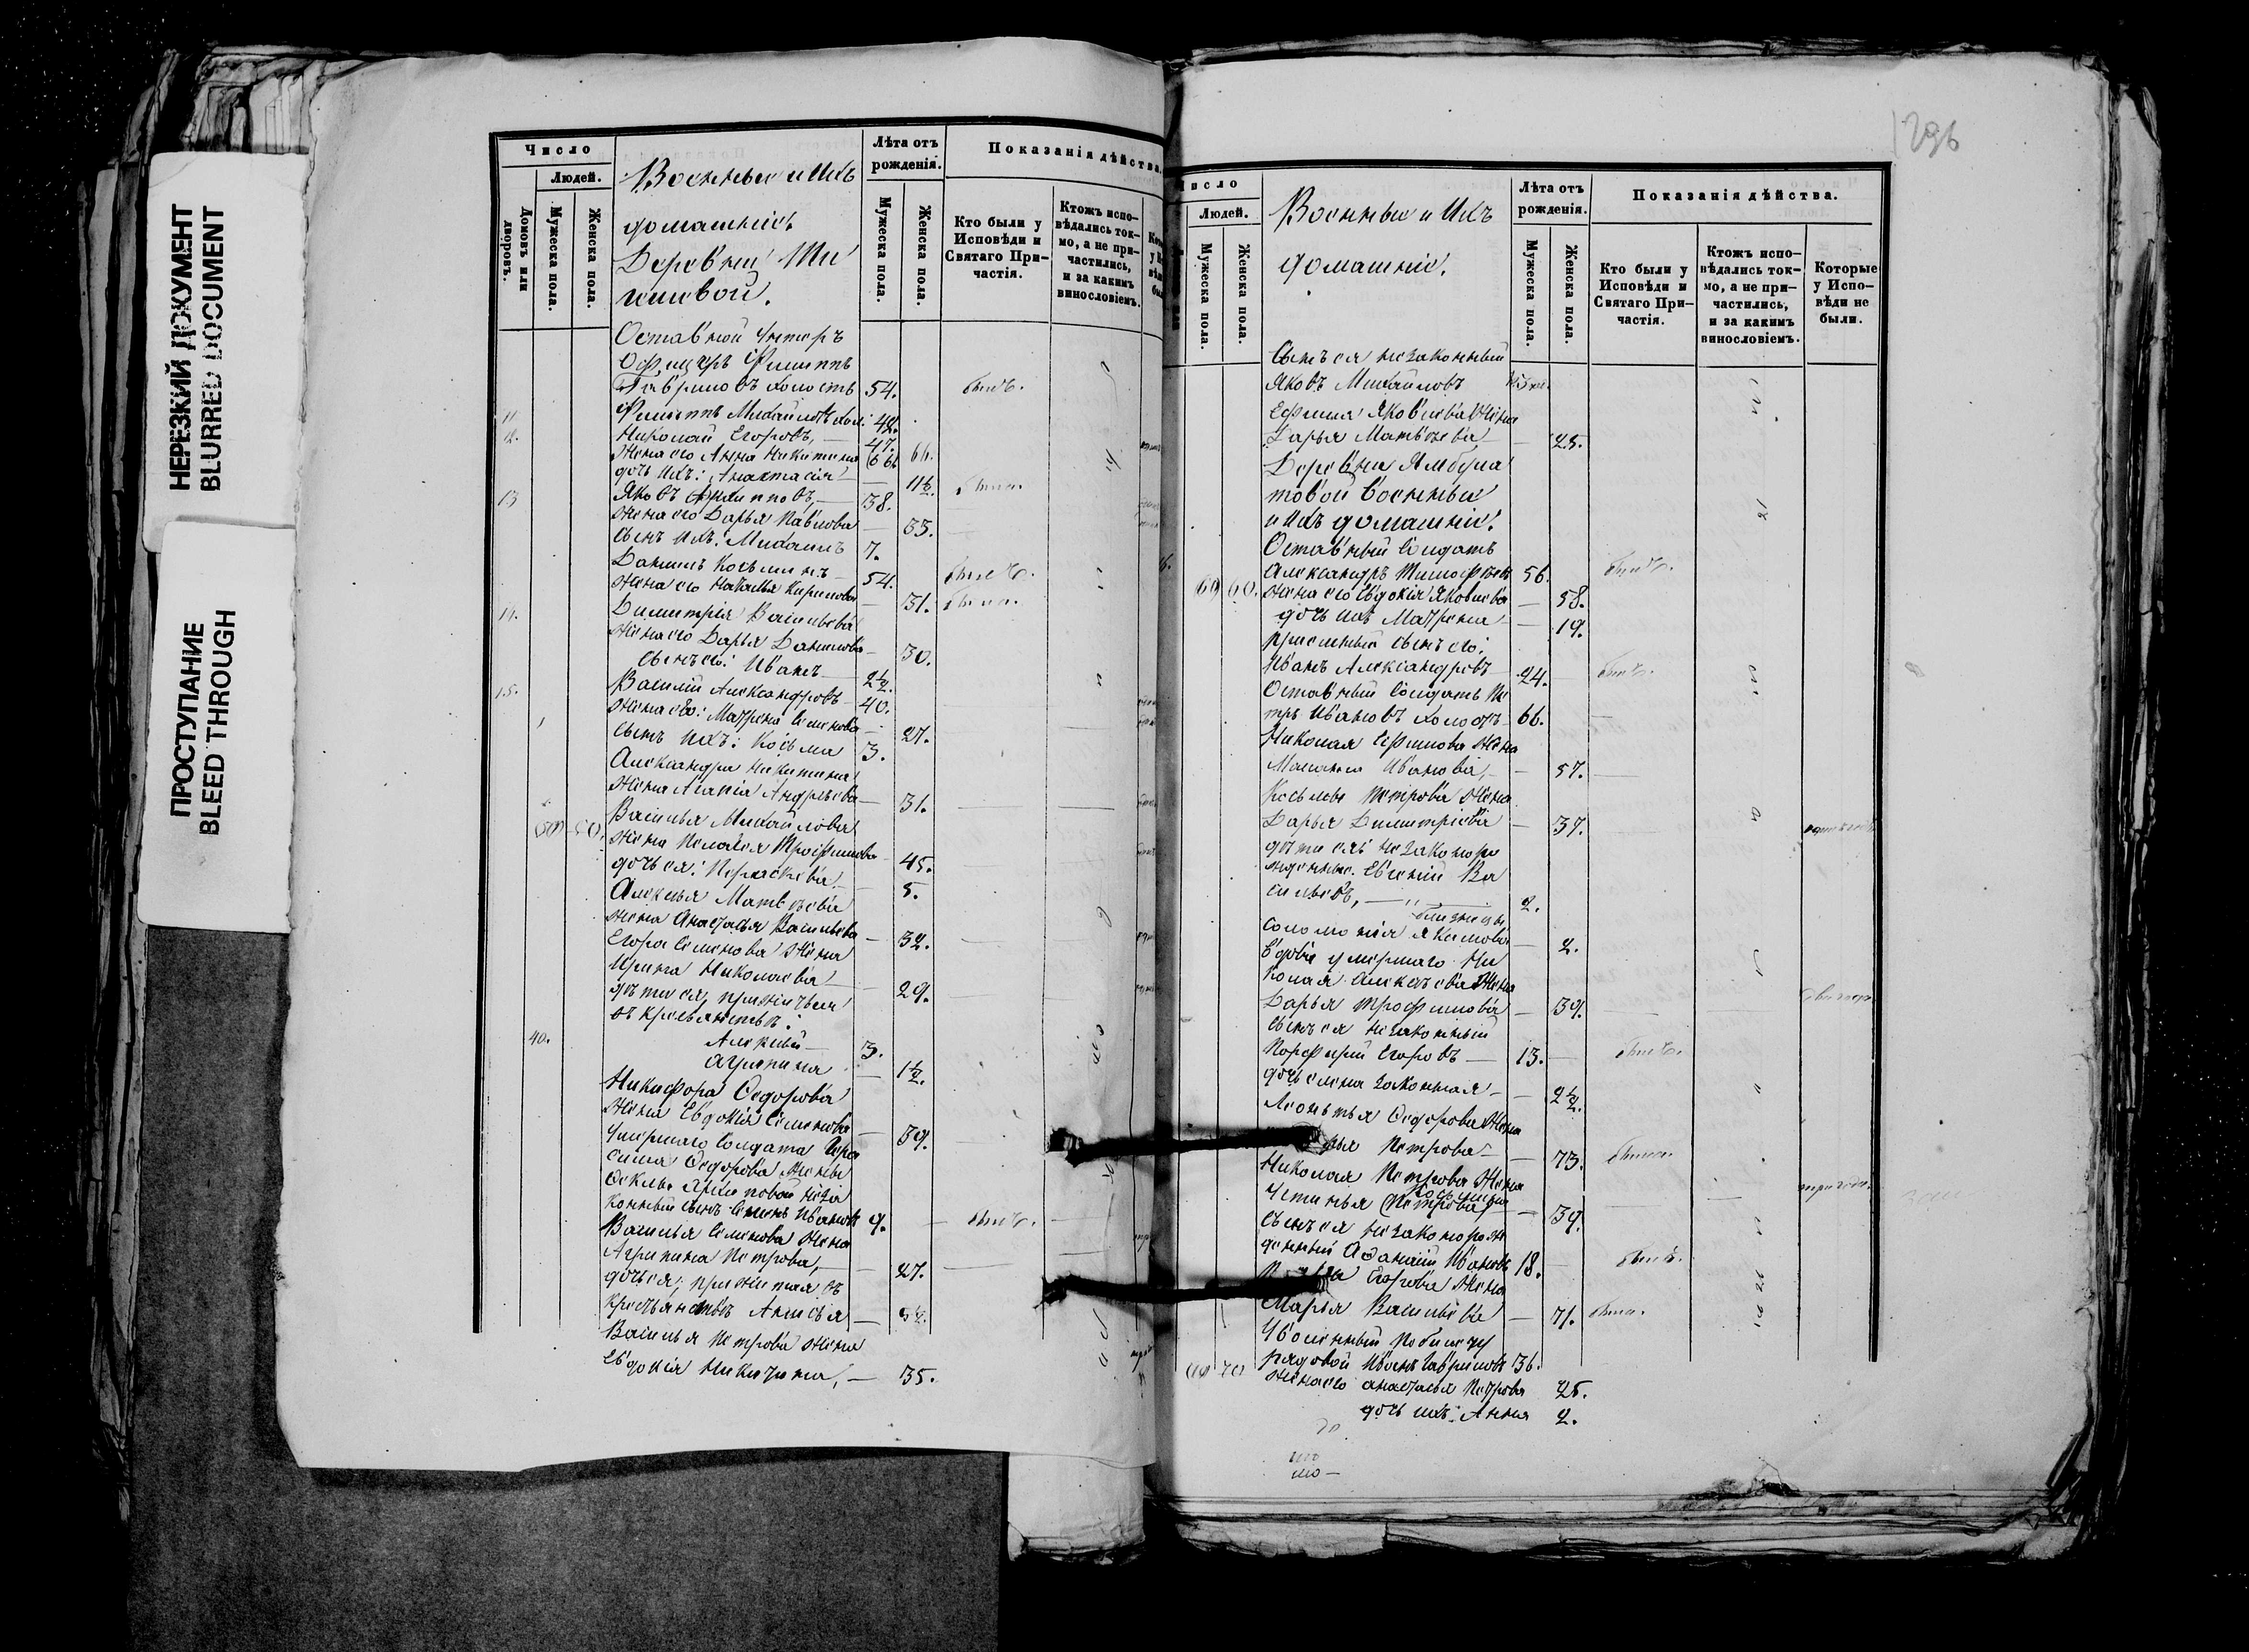 НЕРЕЗКИЙ ДОКУМЕНТ
BLURRED DOCUMENT
ПРОСТУПАНИЕ
BLEED THROUGH
Число
Людей.
Домовъ или дворовъ.
Мужеска пола.
Женска пола.
Военные и ихъ
домашніе.
Деревни
Лѣта отъ рожденія.
Мужеска пола.
Женска пола.
Показанія дѣйства.
Кто были у Исповѣди и Святаго Причастія.
Ктожъ исповѣдались токмо, а не причастились, и за какимъ винословіемъ.
Оставной Унтеръ
Офицеръ Филиппъ
Гавриловъ холостъ 54. былъ.
11 Филиппъ Михайловъ хол: 42.
12. Николай Егоровъ, — 47.
Жена его Анна Никитина 66.
дочь ихъ: Анастасія — 11½.
13 Яковъ Архиповъ, — 38.
Жена его Дарья Павлова — 33.
Сынъ ихъ: Михаилъ 7.
Даниилъ Косьминъ — 54. былъ.
Жена его Наталья Кирилова — 31. была.
14. Димитрія Васильева
Жена его Дарья Данилова — 30.
Сынъ его: Иванъ — 2½.
15. Василій Александровъ — 40.
Жена его: Матрена Семенова — 27.
Сынъ ихъ: Косьма 3.
Александра Никитина
Жена Агапія Андреева — 31.
Василья Михайлова
Жена Пелагея Трофимова — 45.
дочь ея: Параскева. — 5.
Алексея Матвѣева
Жена Анастасья Васильева — 32.
Егора Семенова Жена
Ирина Николаева — 29.
дѣти ея, прижитыя
въ крестьянствѣ:
40. Алексѣй — 3.
Агрипина — 1½.
Никифора Ѳедорова
Жена Евдокія Семенова — 39.
Умершаго Солдата Гера
сима Ѳедорова Жены
Ѳеклы Архиповой неза
конный сынъ Семенъ Ивановъ 9. былъ.
Василья Семенова Жена
Агрипина Петрова, — 27.
дочь ея, прижитая въ
крестьянствѣ Анисья — 5½.
Василья Петрова Жена
Евдокія Никитина, — 35.
296
Число
Людей.
Мужеска пола.
Женска пола.
Военные и ихъ
домашніе.
Лѣта отъ рожденія.
Мужеска пола.
Женска пола.
Показанія дѣйства.
Кто были у Исповѣди и Святаго Причастія.
Ктожъ исповѣдались токмо, а не причастились, и за какимъ винословіемъ.
Которые у Исповѣди не были.
Сынъ ея незаконный
Яковъ Михайловъ
Ефима Яковлева Жена
Дарья Матвѣева — 25.
Деревни Ямбула
товой военные
и ихъ домашніе.
Оставный Солдатъ
Александръ Тимофѣевъ 56. былъ.
69 60. Жена его Евдокія Яковлева — 58.
дочь ихъ Матрена — 19.
пріемный сынъ его:
Иванъ Александровъ 24. былъ.
Оставный Солдатъ Пе
тръ Ивановъ холостъ 66.
Николая Ефимова Жена
Маланья Иванова, — 57.
Косьмы Петрова Жена
Дарья Димитріева — 37.
дѣти ея: незаконоро
жденные. Евгеній Ва
сильевъ, — 2.
близнецы
Соломонія Якимова — 2.
вдова умершаго Ни
колая Алексѣева Жена
Дарья Трофимова — 39.
Сынъ ея незаконный
Порфирій Егоровъ — 13. былъ.
дочь Елена законная — 2½.
Леонтья Ѳедорова Жена
Петрова — 73. была.
Николая Петрова Жена
Устинья Петрова — 39. три года.
Сынъ ея незаконорож
денный Аѳанасій Ивановъ 18. былъ.
Егорова Жена
Марья Васильева — 71. была.
Уволенный по билету
рядовой Иванъ Гавриловъ 36.
Жена его Анастасья Петрова 25.
дочь ихъ: Анна 2.